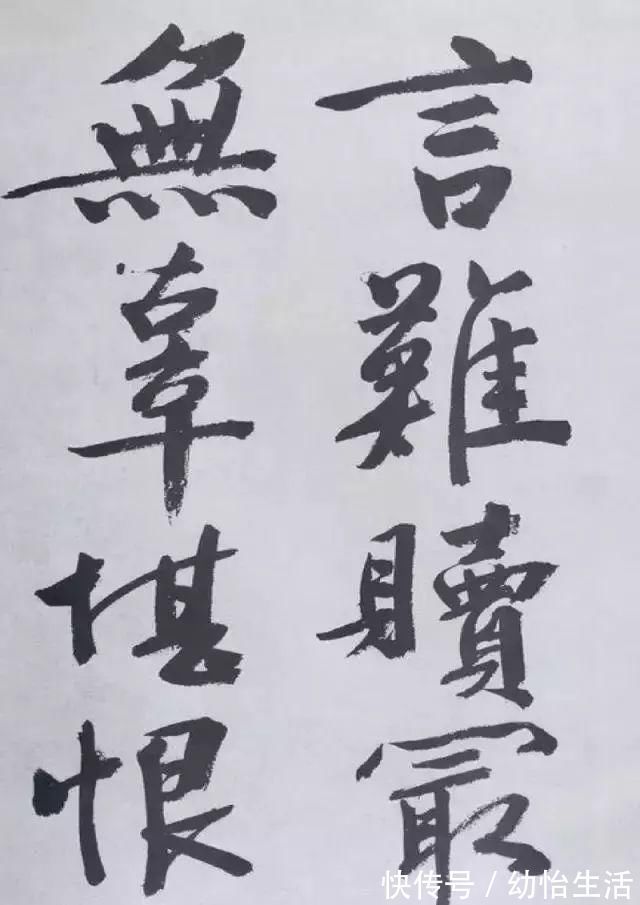 言難贖冣
無辜堪恨
快传号 / 幼怡生活